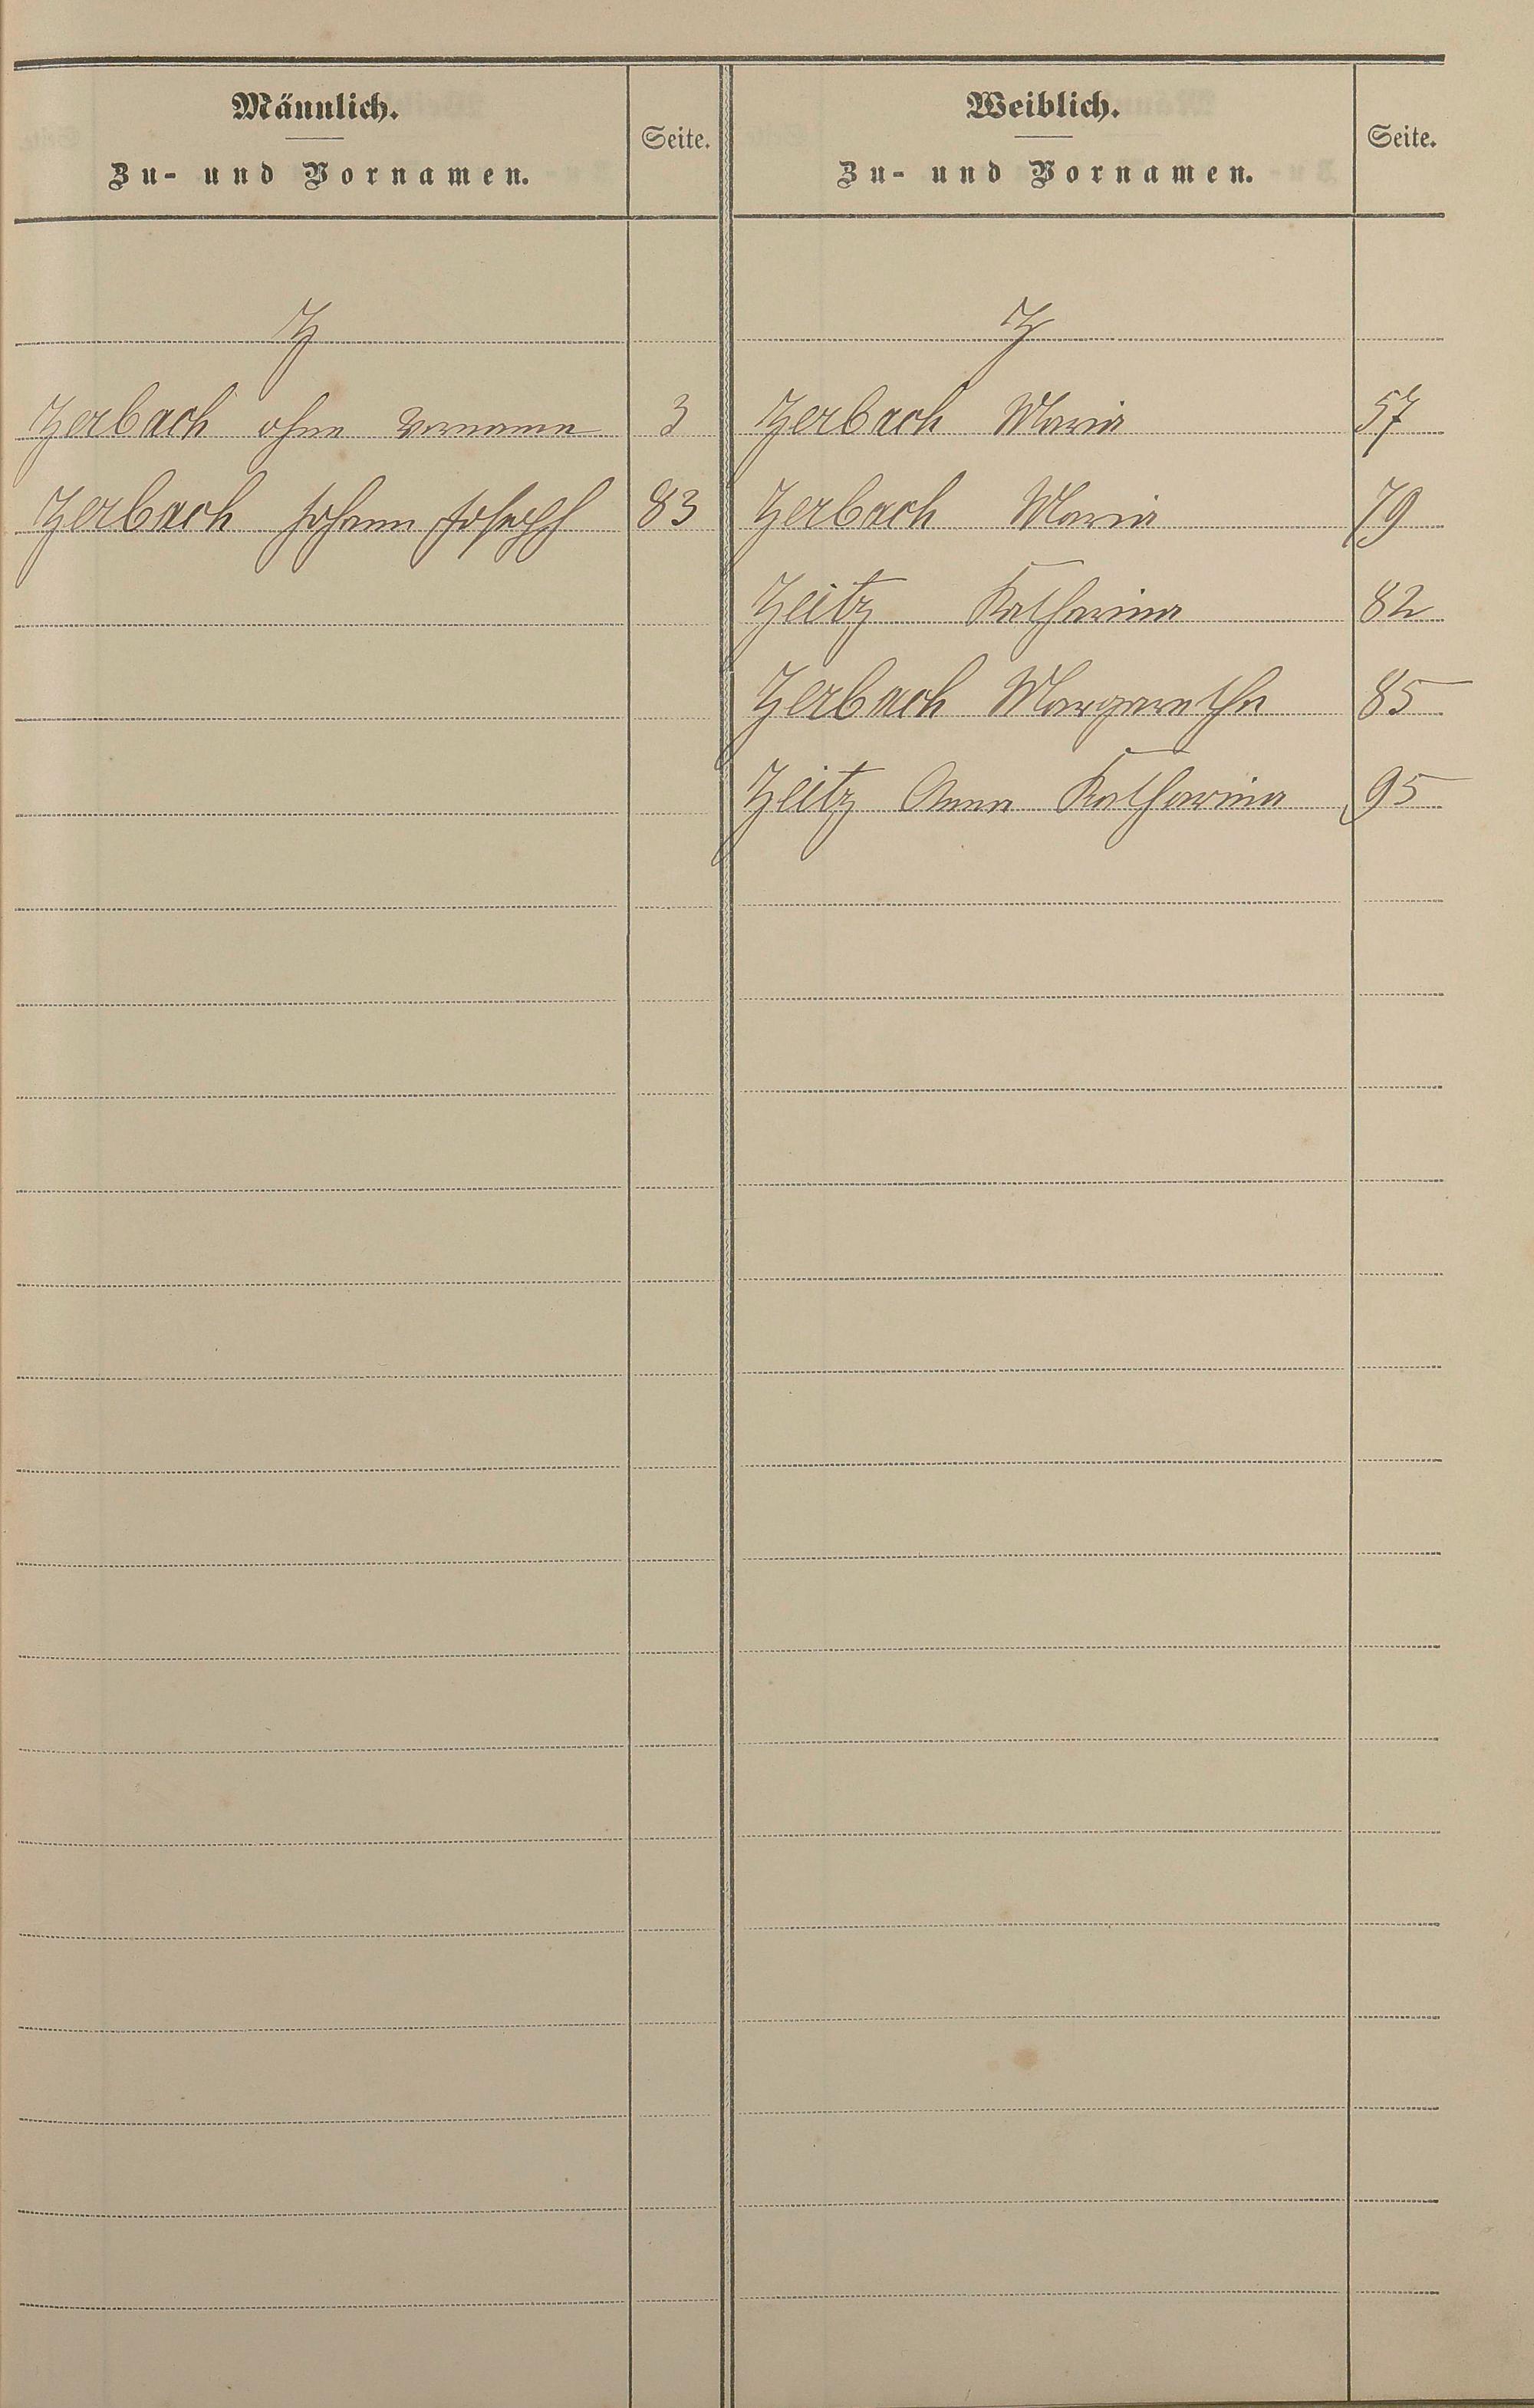 Männlich.
Zu- und Vornamen.
Seite.
Weiblich.
Zu- und Vornamen.
Seite.
Z
Zerbach ohne Vorname 3
Zerbach Johann Joseph 83
Z
Zerbach Maria 57
Zerbach Maria 79
Zeitz Katharina 82
Zerbach Margaretha 85
Zeitz Anna Katharina 95